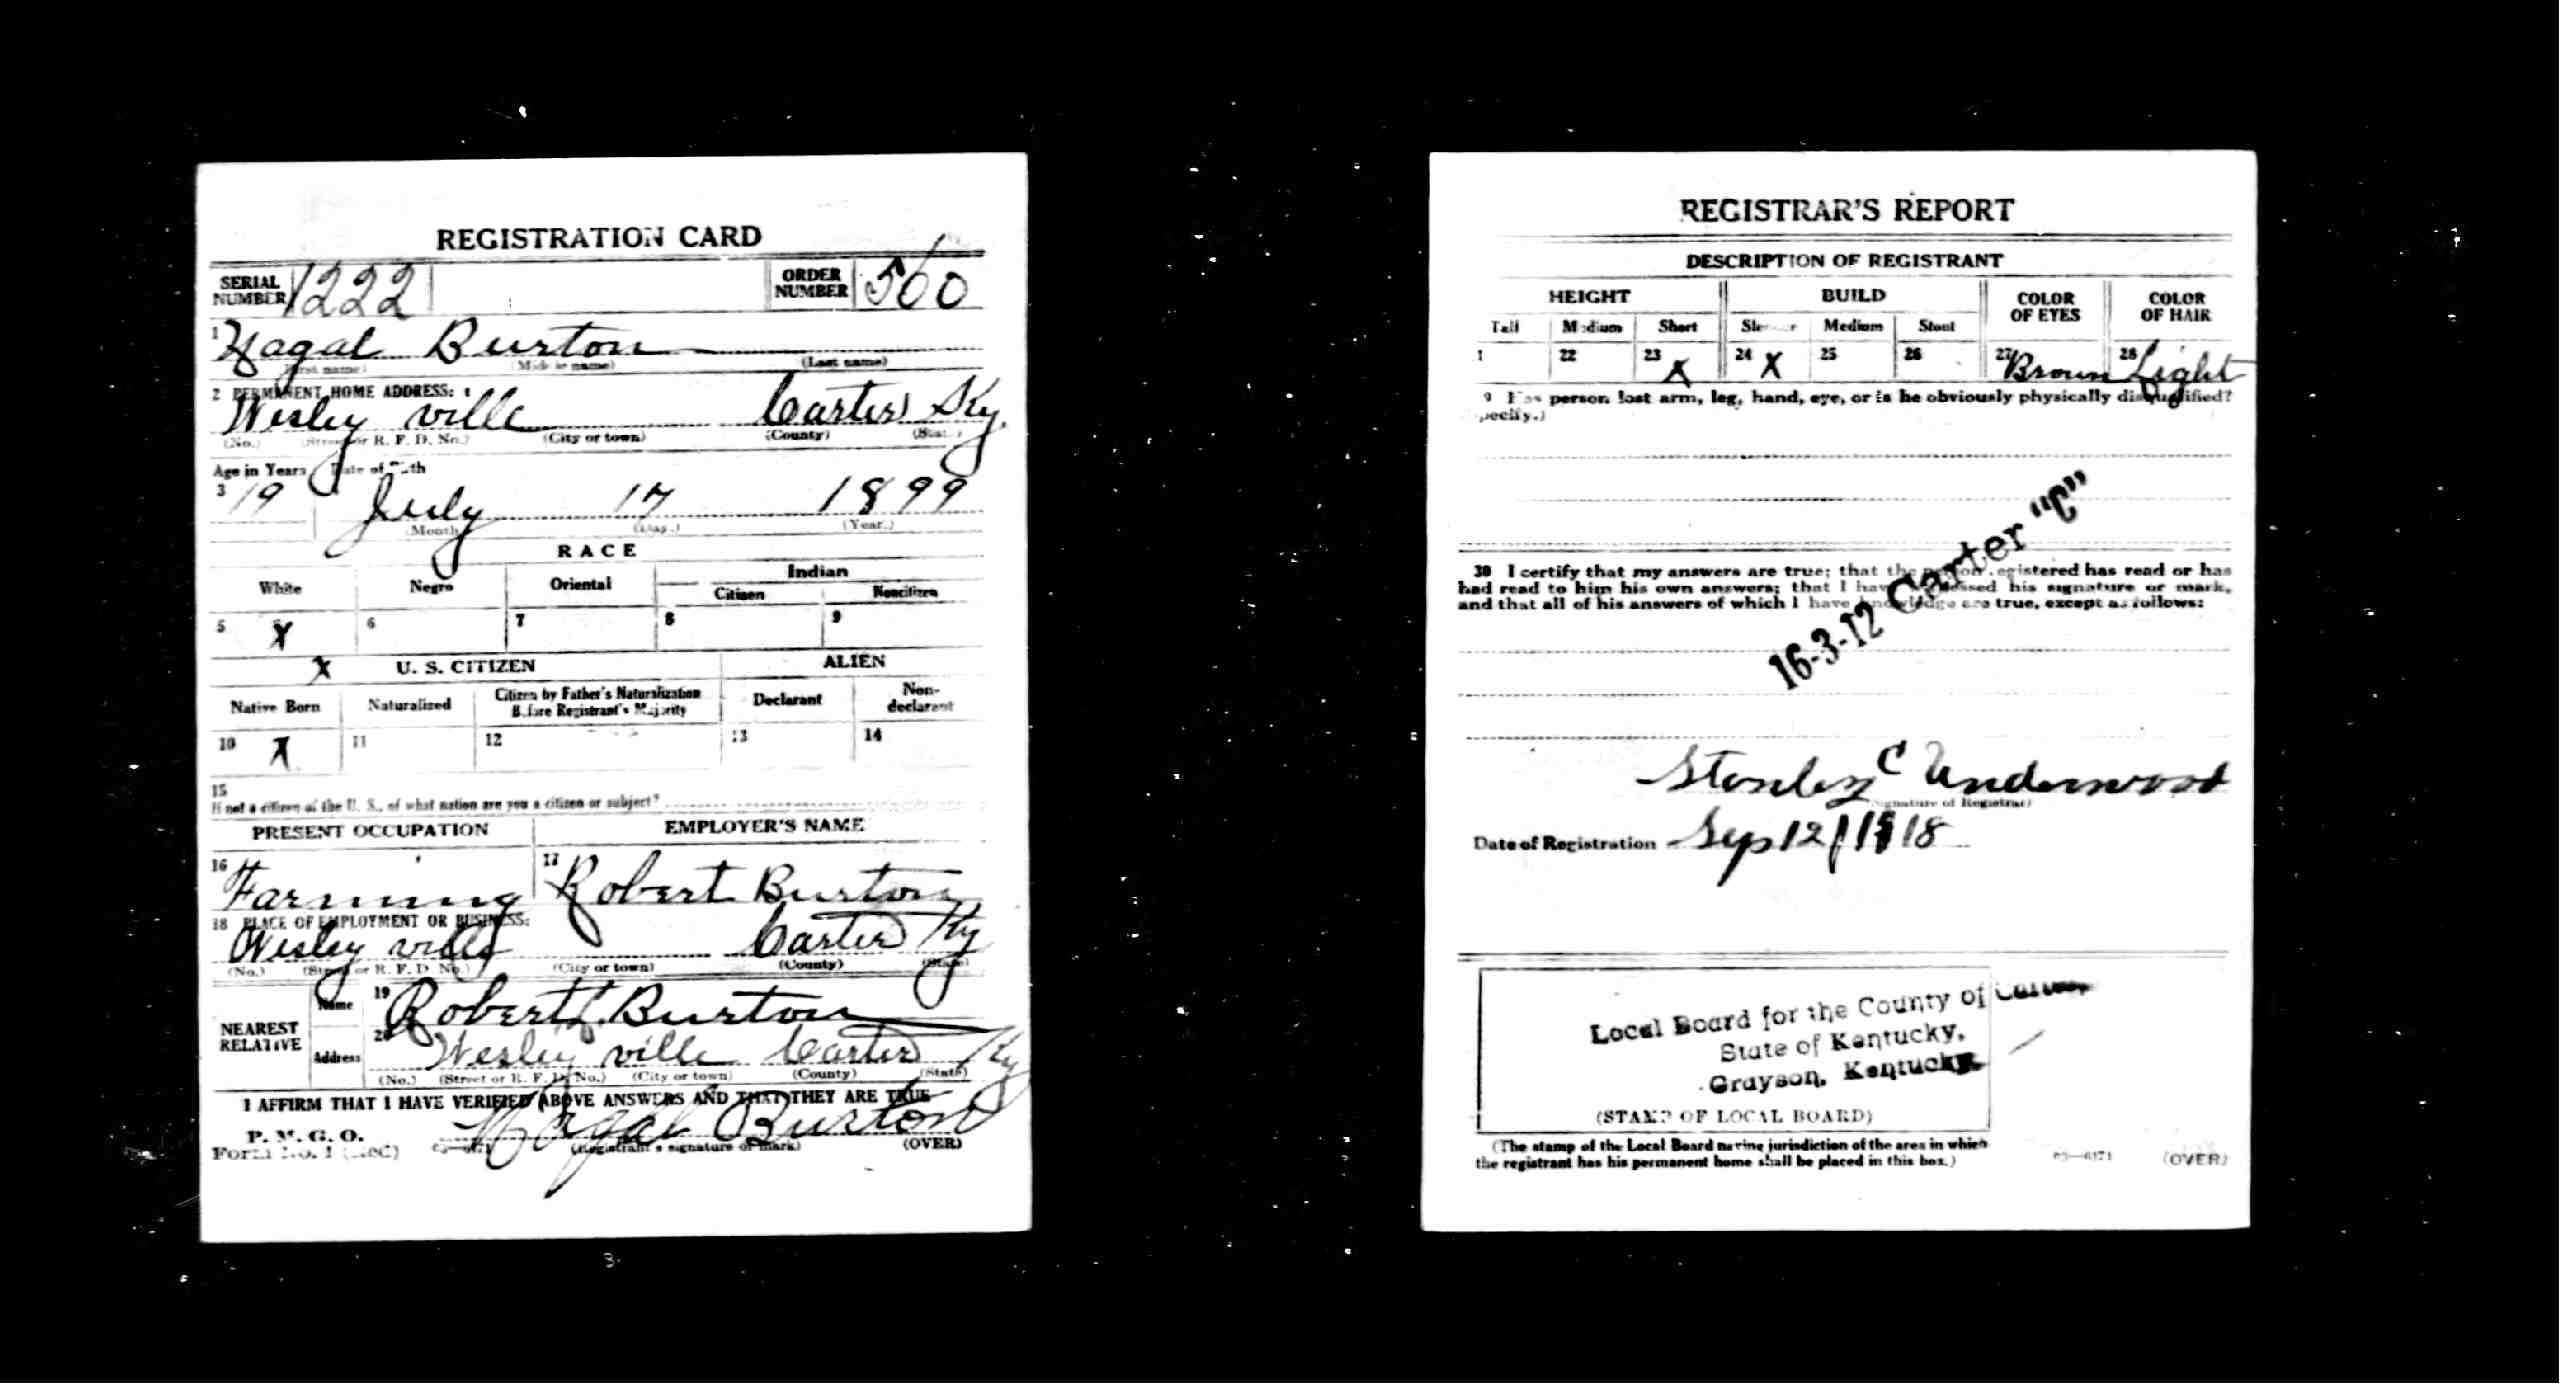 REGISTRATION CARD
SERIAL NUMBER 1222 ORDER NUMBER 560
1 Hagal Burton
(First name) (Middle name) (Last name)
2 PERMANENT HOME ADDRESS:
Wesley ville Carter Ky.
(No.) (Street or R. F. D. No.) (City or town) (County) (State)
Age in Years Date of Birth
3 19 July 17 1899
(Month) (Day.) (Year.)
RACE
White Negro Oriental Indian
Citizen Noncitizen
5 X 6 7 8 9
X U. S. CITIZEN ALIEN
Native Born Naturalized Citizen by Father's Naturalization Before Registrant's Majority Declarant Non-declarant
10 X 11 12 13 14
15
If not a citizen of the U. S., of what nation are you a citizen or subject?
PRESENT OCCUPATION EMPLOYER'S NAME
16 Farming 17 Robert Burton
18 PLACE OF EMPLOYMENT OR BUSINESS:
Wesley ville Carter Ky
(No.) (Street or R. F. D. No.) (City or town) (County) (State)
NEAREST RELATIVE
Name 19 Robert Burton
Address 20 Wesley ville Carter Ky
(No.) (Street or R. F. D. No.) (City or town) (County) (State)
I AFFIRM THAT I HAVE VERIFIED ABOVE ANSWERS AND THAT THEY ARE TRUE
P. M. G. O.
Form No. 1 (Red) Hagal Burton
(Registrant's signature or mark) (OVER)
REGISTRAR'S REPORT
DESCRIPTION OF REGISTRANT
HEIGHT BUILD COLOR OF EYES COLOR OF HAIR
Tall Medium Short Slender Medium Stout
22 23 X 24 X 25 26 27 Brown 28 Light
9 Has person lost arm, leg, hand, eye, or is he obviously physically disqualified?
pecify.)
16-3-12 Carter "C"
30 I certify that my answers are true; that the person registered has read or has
had read to him his own answers; that I have witnessed his signature or mark,
and that all of his answers of which I have knowledge are true, except as follows:
Stanley C Underwood
(Signature of Registrar)
Date of Registration Sep 12 1918
Local Board for the County of Carter,
State of Kentucky,
Grayson, Kentucky.
(STAMP OF LOCAL BOARD)
(The stamp of the Local Board having jurisdiction of the area in which
the registrant has his permanent home shall be placed in this box.)
(OVER)